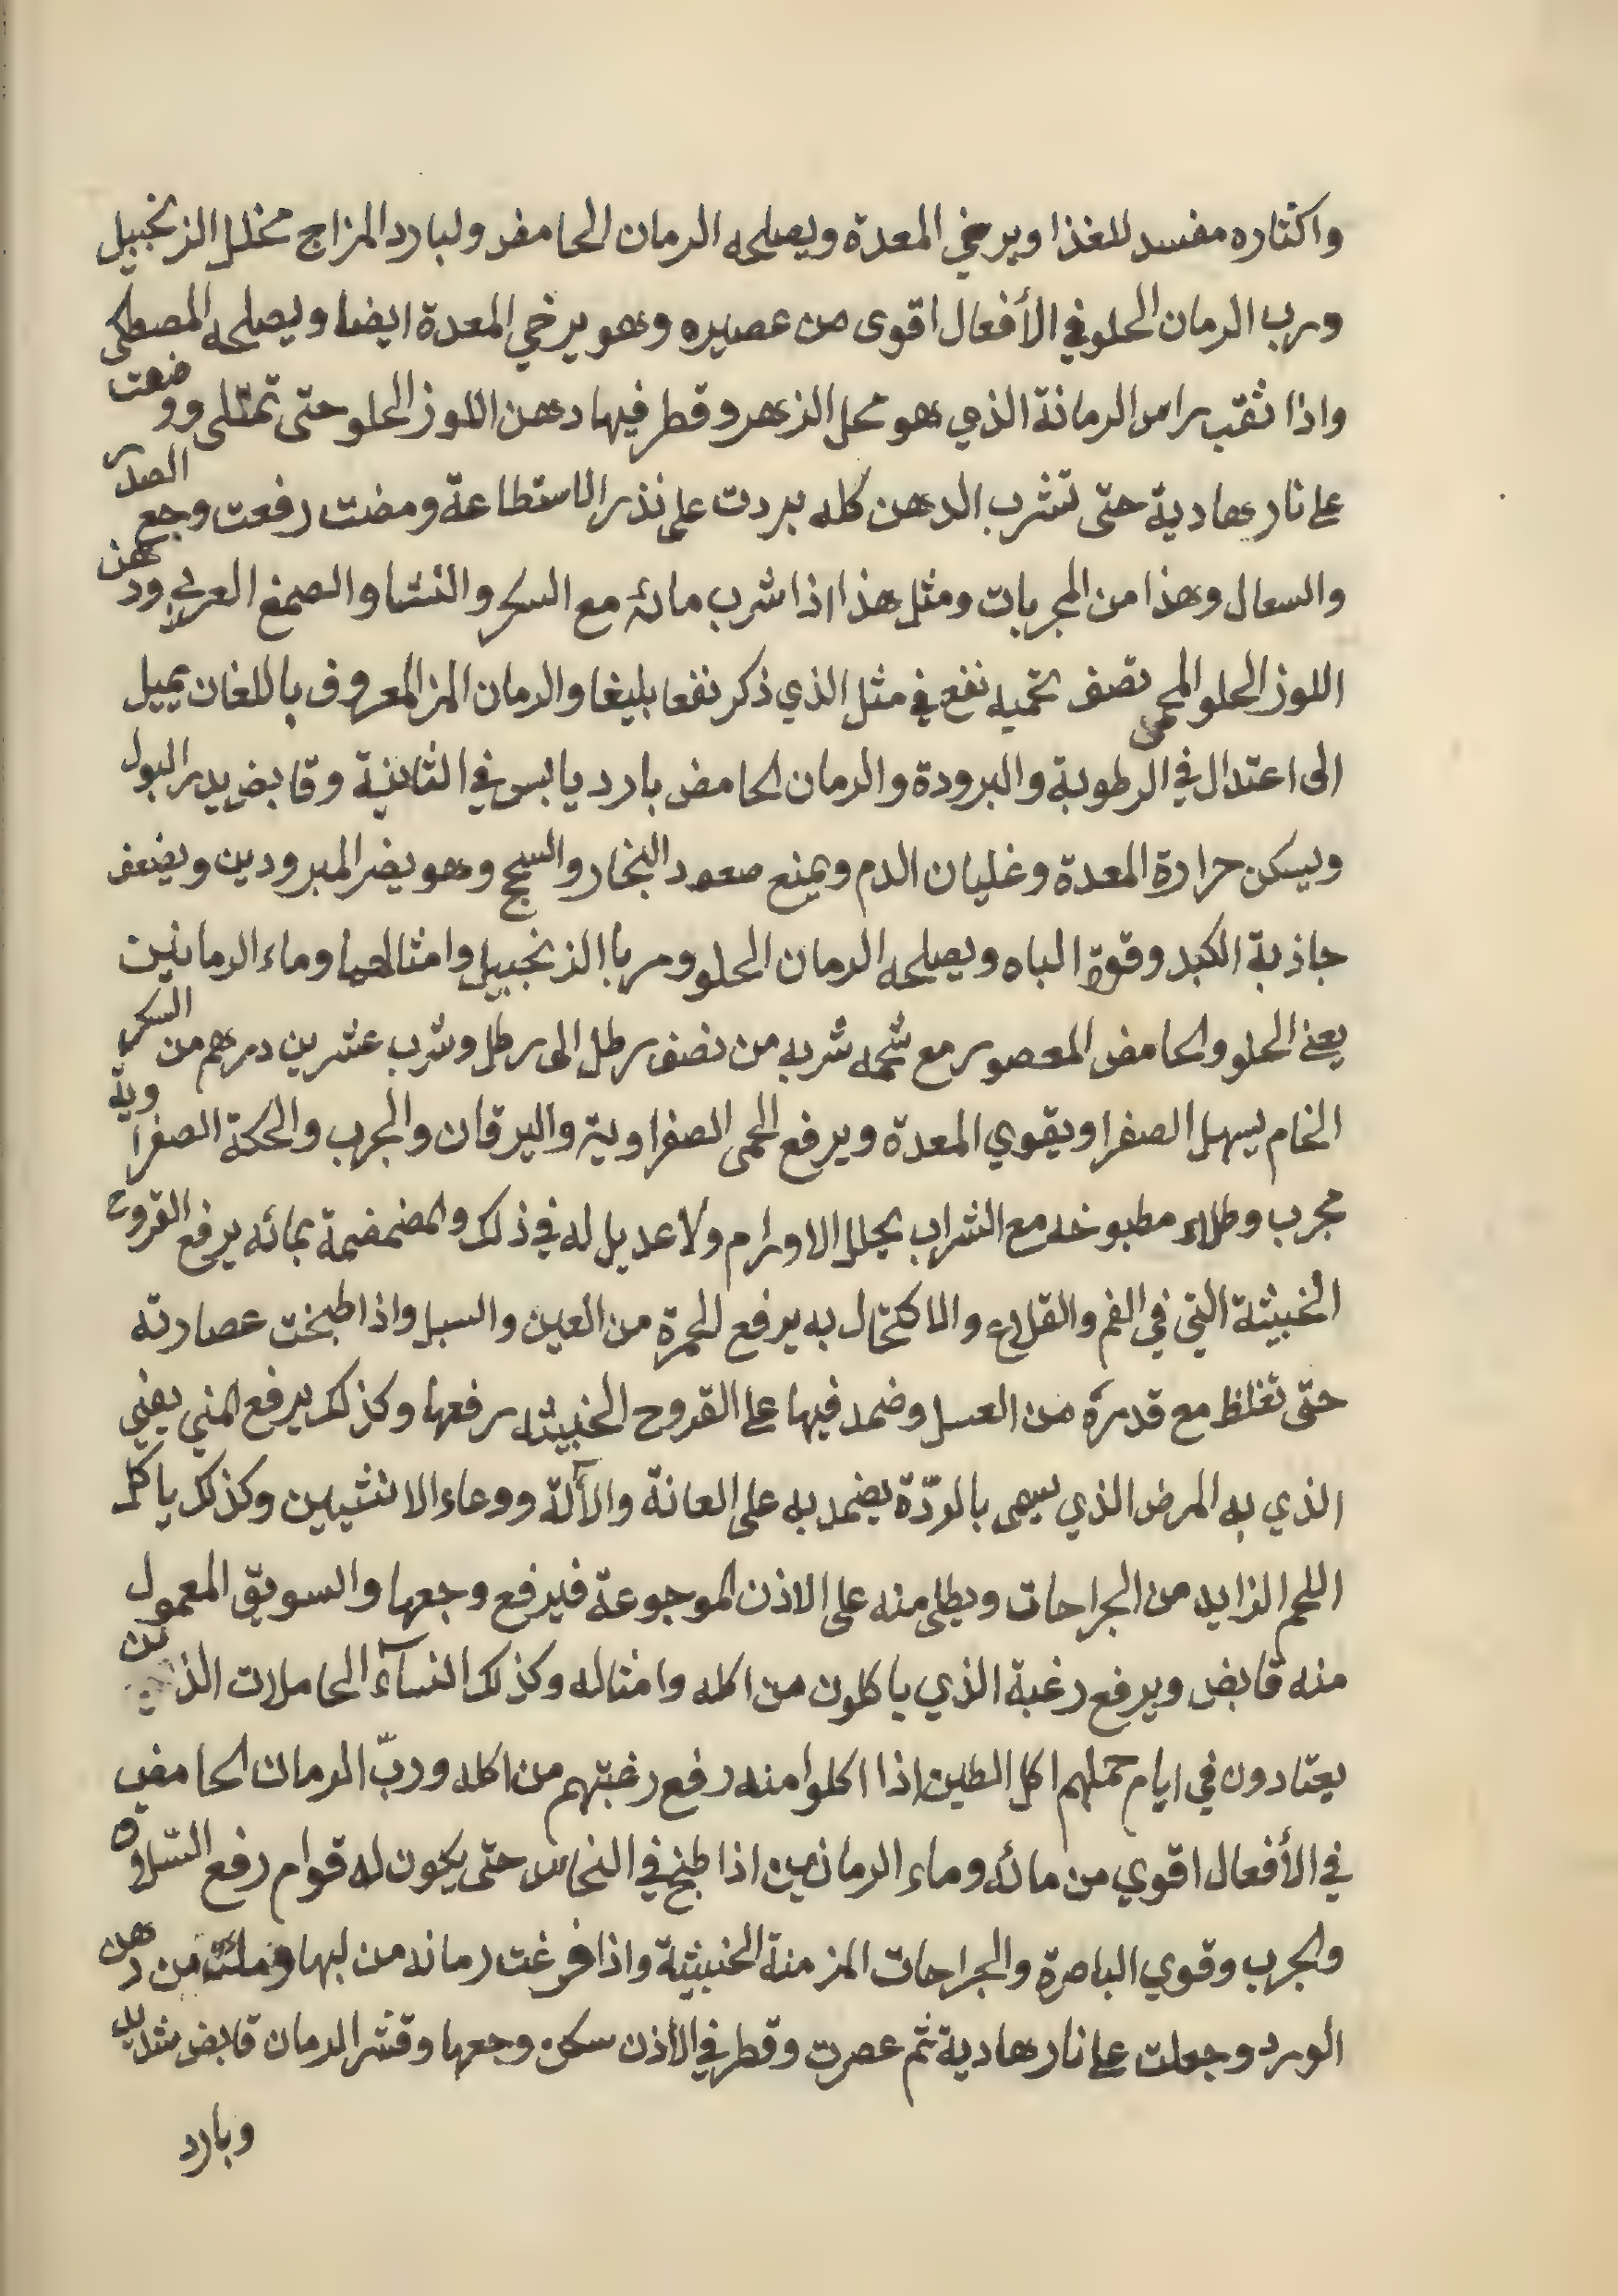 واكثاره مفسد للغذا ويرخي المعدة ويصلحه الرمان الحامض ولبارد المزاج مخلل الزنجبيل
ورب الرمان الحلو في الأفعال اقوى من عصيره وهو يرخي المعدة ايضا ويصلحه المصطكى
واذا ثقب راس الرمانة الذي هو محل الزهر وقطر فيها دهن اللوز الحلو حتى تمتلى ووضعت
على نار هادية حتى تشرب الدهن كله بردت على نذر الاستطاعة ومضت رفعت وجع الصدر
والسعال وهذا من المجربات ومثل هذا اذا شرب مائه مع السكر والنشا والصمغ العربي ودهن
اللوز الحلو المحمى نصف تحميه نفع في مثل الذي ذكر نفعا بليغا والرمان المز المعروف باللغان يميل
الى اعتدال في الرطوبة والبرودة والرمان الحامض بارد يابس في الثانية وقابض يدر البول
ويسكن حرارة المعدة وغليان الدم ويمنع صعود البخار والسحج وهو يضر المبرودين ويضعف
جاذبة الكبد وقوة الباه ويصلحه الرمان الحلو ومربا الزنجبيل وامثالهما وماء الرمانين
يعني الحلو والحامض المعصور مع شحمه شربه من نصف رطل الى رطل وشرب عشرين درهم من السكر
الخام يسهل الصفرا ويقوي المعدة ويرفع الحمى الصفراوية واليرقان والجرب والحكة الصفراوية
مجرب وطلاء مطبوخه مع الشراب يحلل الاورام ولا عديل له في ذلك والمضمضمة بمائه يرفع القروح
الخبيثة التي في الفم والقلاع والاكتحال به يرفع الحمرة من العين والسبل واذا طبخت عصارته
حتى تغلظ مع قدره من العسل وضمد فيها على القروح الخبيثه رفعها وكذلك يرفع المني يعني
الذي به المرض الذي يسمى بالردّة يضمد به على العانة والآلة ووعاء الانثيين وكذلك ياكل
اللحم الزايد من الجراحات ويطلى منه على الاذن الموجوعة فيرفع وجعها والسويق المعمول
منه قابض ويرفع رغبة الذي ياكلون من اكله وامثاله وكذلك النسآء الحاملات الذين
يعتادون في ايام حملهم اكل الطين اذا اكلوا منه رفع رغبتهم من اكله وربّ الرمان الحامض
في الأفعال اقوي من مائه وماء الرمانين اذا طبخ في النحاس حتى يكون له قوام رفع السلاق
والجرب وقوي الباصرة والجراحات المزمنة الخبيثة واذا فرغت رمانه من لبها وملئت من دهن
الورد وجعلت على نار هادية ثم عصرت وقطر في الاذن سكن وجعها وقشر الرمان قابض
وبارد